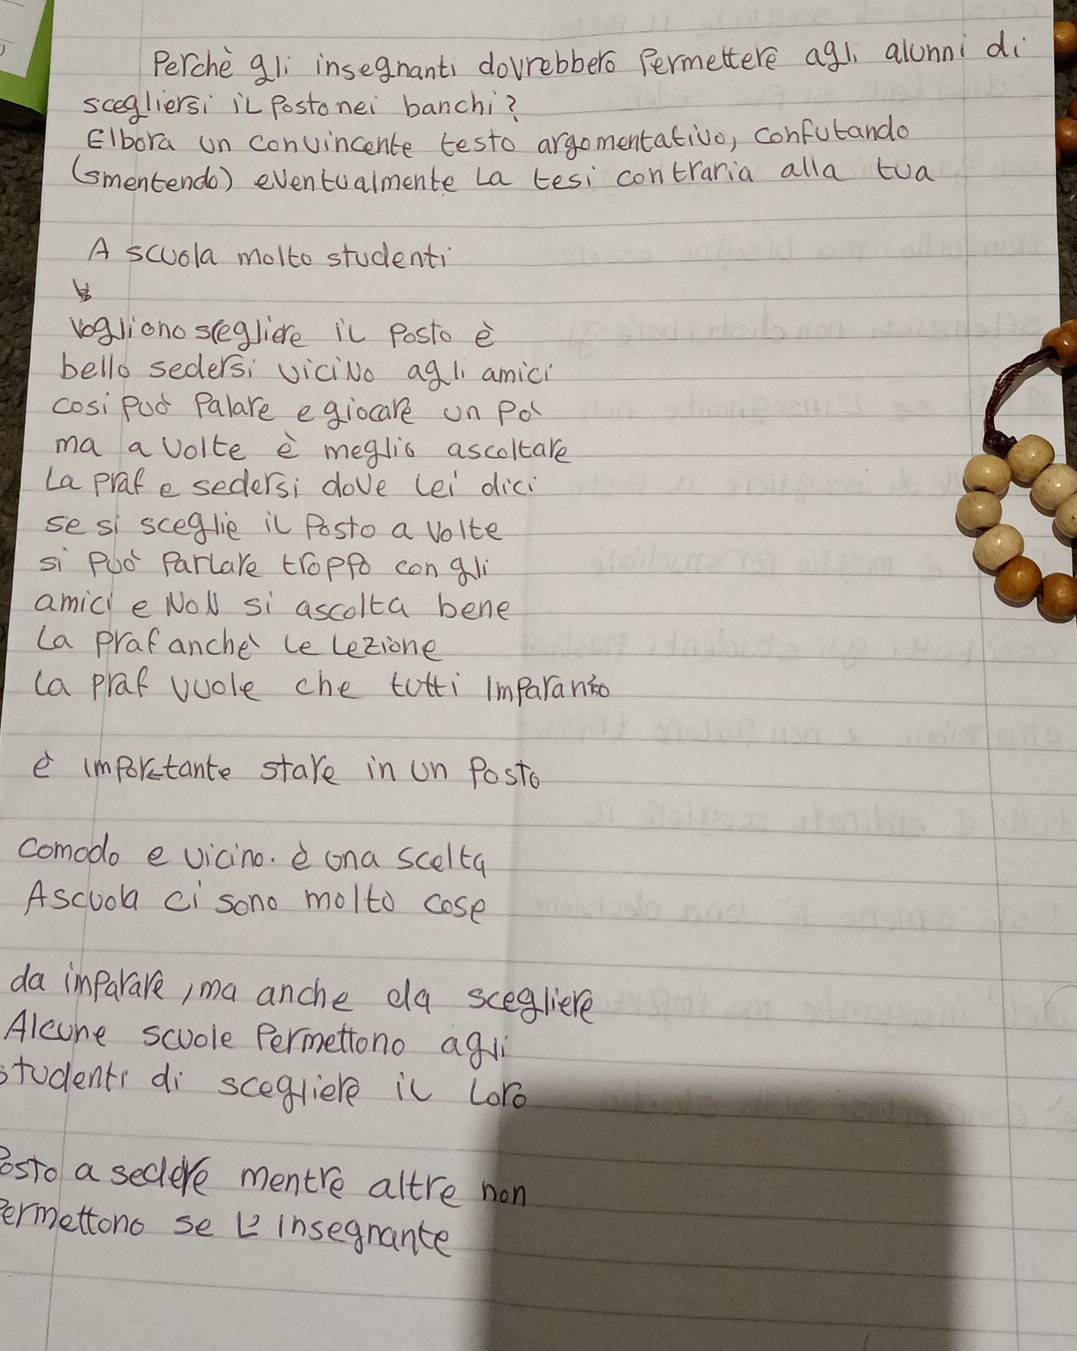 Perchè gli insegnanti dovrebbero Permettere agli alunni di
scegliersi il Posto nei banchi?
Elbora un convincente testo argomentativo, confutando
(smentendo) eventualmente La tesi contraria alla tua
A scuola molto studenti
vogliono scegliere il Posto è
bello sedersi viciNo agli amici
cosi può Palare e giocare un Po'
ma a volte è meglio ascoltare
La praf e sedersi dove lei dici
se si sceglie il Posto a volte
si può Parlare troppo con gli
amici e NoN si ascolta bene
La praf anche le lezione
La praf vuole che tutti Imparano
è importante stare in un Posto
comodo e vicino. è una scelta
A scuola ci sono molto cose
da imparare, ma anche da scegliere
Alcune scuole Permettono agli
studenti di scegliere il Loro
Posto a sedere mentre altre non
Permettono se L'insegnante